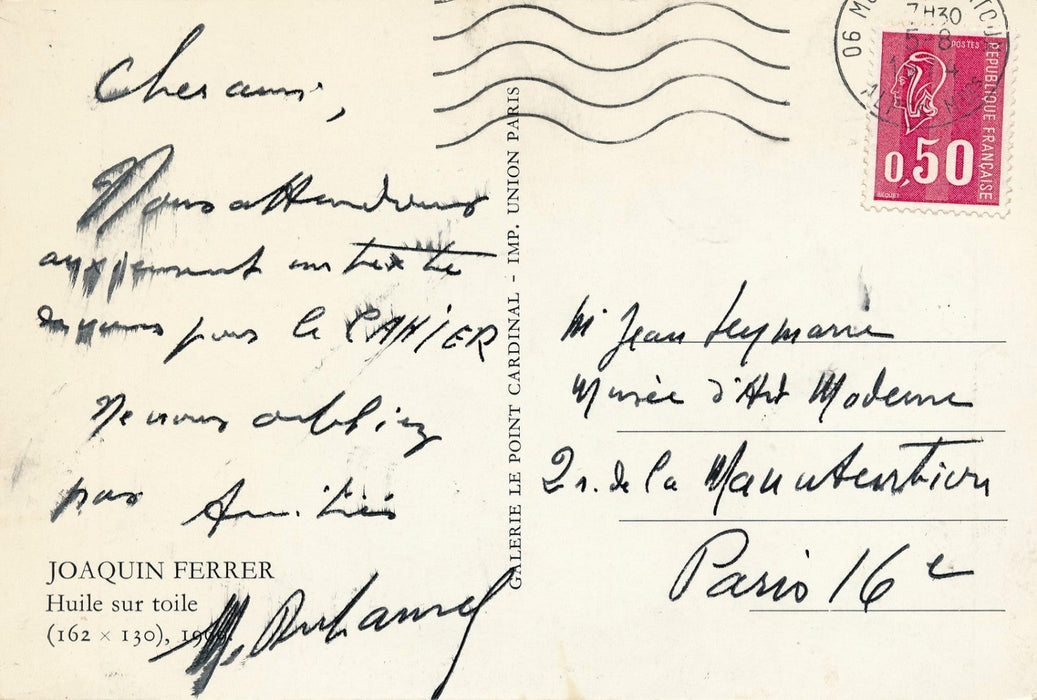 Cher ami,
Nous attendons
un texte
pour le CAHIER
Ne nous oubliez
pas Amitiés
JOAQUIN FERRER
Huile sur toile
(162 × 130),
GALERIE LE POINT CARDINAL - IMP. UNION PARIS
7H30
5-8
06
POSTES
REPUBLIQUE FRANÇAISE
0,50
Mr Jean Leymarie
Musée d'Art Moderne
2 r. de la Manutention
Paris 16e